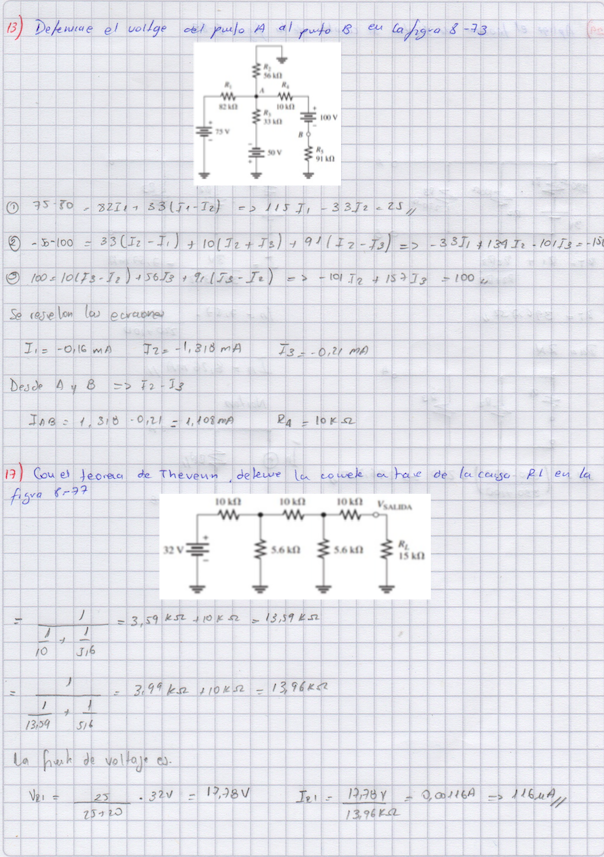 13) Determine el voltge del punto A al punto B en la figra 8-73
R2
56 kΩ
R1
A
R4
82 kΩ
R3
33 kΩ
10 kΩ
100 V
75 V
B
50 V
R5
91 kΩ
① 75-80 = 82I1 + 33(I1-I2) => 115I1 - 33I2 = 25
② -50-100 = 33(I2-I1) + 10(I2+I3) + 91(I2-I3) => -33I1 + 134I2 - 101I3 = -150
③ 100 = 10(I3-I2) + 56I3 + 91(I3-I2) => -101I2 + 157I3 = 100
Se reselon las ecraciones
I1 = -0,16 mA I2 = -1,318 mA I3 = -0,21 mA
Desde A y B => I2 - I3
IAB = 1,318 - 0,21 = 1,108mA R4 = 10KΩ
17) Con el teorema de Thevenin, determe la corriete a traves de la carga Rl en la
figra 8-77
10 kΩ 10 kΩ 10 kΩ VSALIDA
32 V 5.6 kΩ 5.6 kΩ RL
15 kΩ
= 1 / (1/10 + 1/5,6) = 3,59 KΩ + 10KΩ = 13,59KΩ
= 1 / (1/13,59 + 1/5,6) = 3,99 KΩ + 10KΩ = 13,96KΩ
la fuente de voltaje es.
VR1 = 25 / (25+20) · 32V = 17,78V IR1 = 17,78V / 13,96KΩ = 0,00116A => 116µA